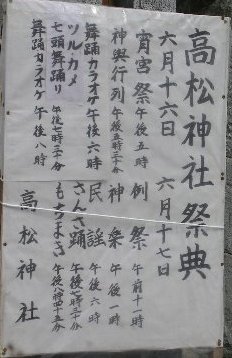 高松神社祭典
六月十六日
宵宮祭 午後五時
神輿行列 午後五時三十分
舞踊カラオケ 午後六時
ツル・カメ
七頭舞踊り 午後七時三十分
舞踊カラオケ 午後八時
六月十七日
例祭 午前十一時
神楽 午後一時
民謡 午後六時
さんさ踊 午後七時三十分
もちまき 午後八時四十五分
高松神社